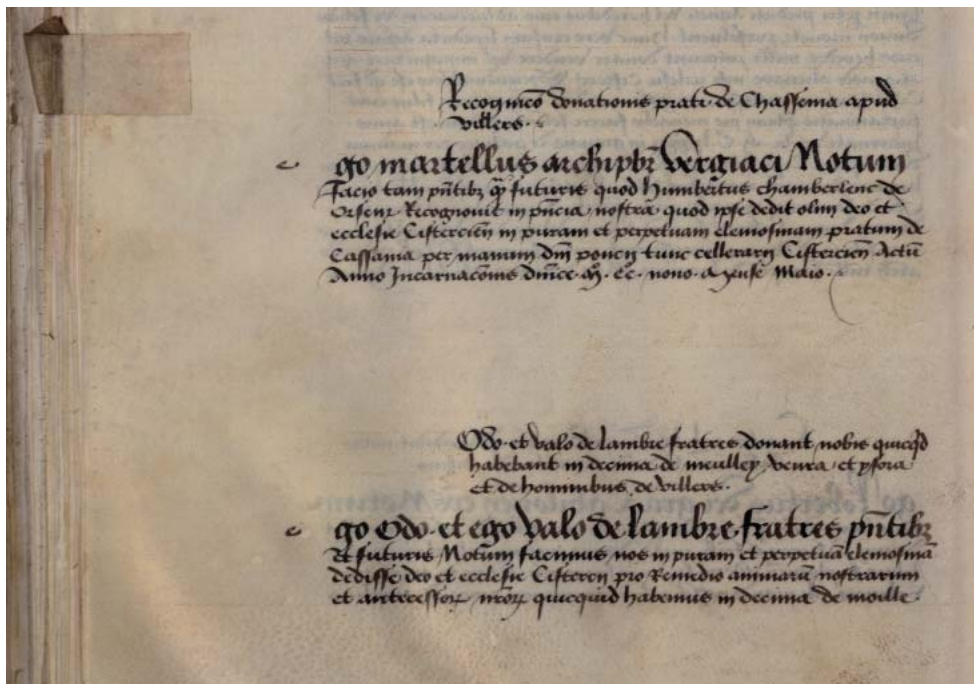 Recognicō donationis prati de Chassenia apud
villers.
e go martellus archipbr̄ Vergiaci Notum
facio tam pn̄tibꝫ qꝫ futuris quod humbertus chamberlenc de
Recognouit in pn̄cia nostra quod ipse dedit olim deo et
ecclesie Cistercien̄ in puram et perpetuam elemosinam pratum de
Cassania per manum dm̄ poncij tunc cellerarij Cistercien̄ Actū
Anno Incarnacōnis dn̄ice. M. cc. nono. mense Maio.
Odo et valo de lambre fratres donant nobis quicq̄d
habebant in decima de meulley, veura, et
et de hominibus de villers.
e go Odo et ego valo de lambre fratres pn̄tibꝫ
Et futuris Notum facimus nos in puram et perpetuā elemosinā
dedisse deo et ecclesie Cistercn̄ pro Remedio animarū nostrarum
et antecessoꝝ nr̄oꝝ quicquid habemus in decima de moille.